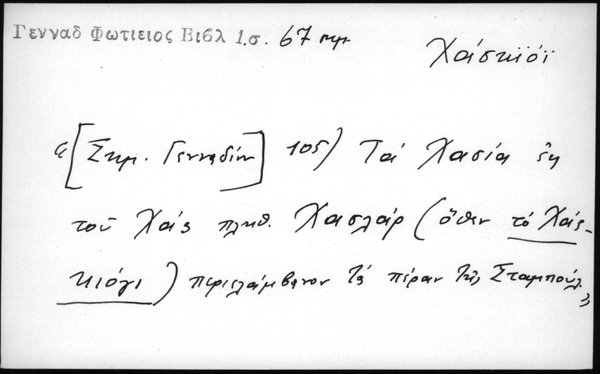 Γενναδ Φωτιειος Βιβλ 1.σ. 67 σημ.
Χάσκϊόϊ
«[Σημ. Γενναδίου] 105) Τά Χασία ἐκ
τοῦ Χάς πληθ. Χασλάρ (ὅθεν τό Χάς-
κιόγι) περιελάμβανον τά πέραν τῆς Σταμπούλ